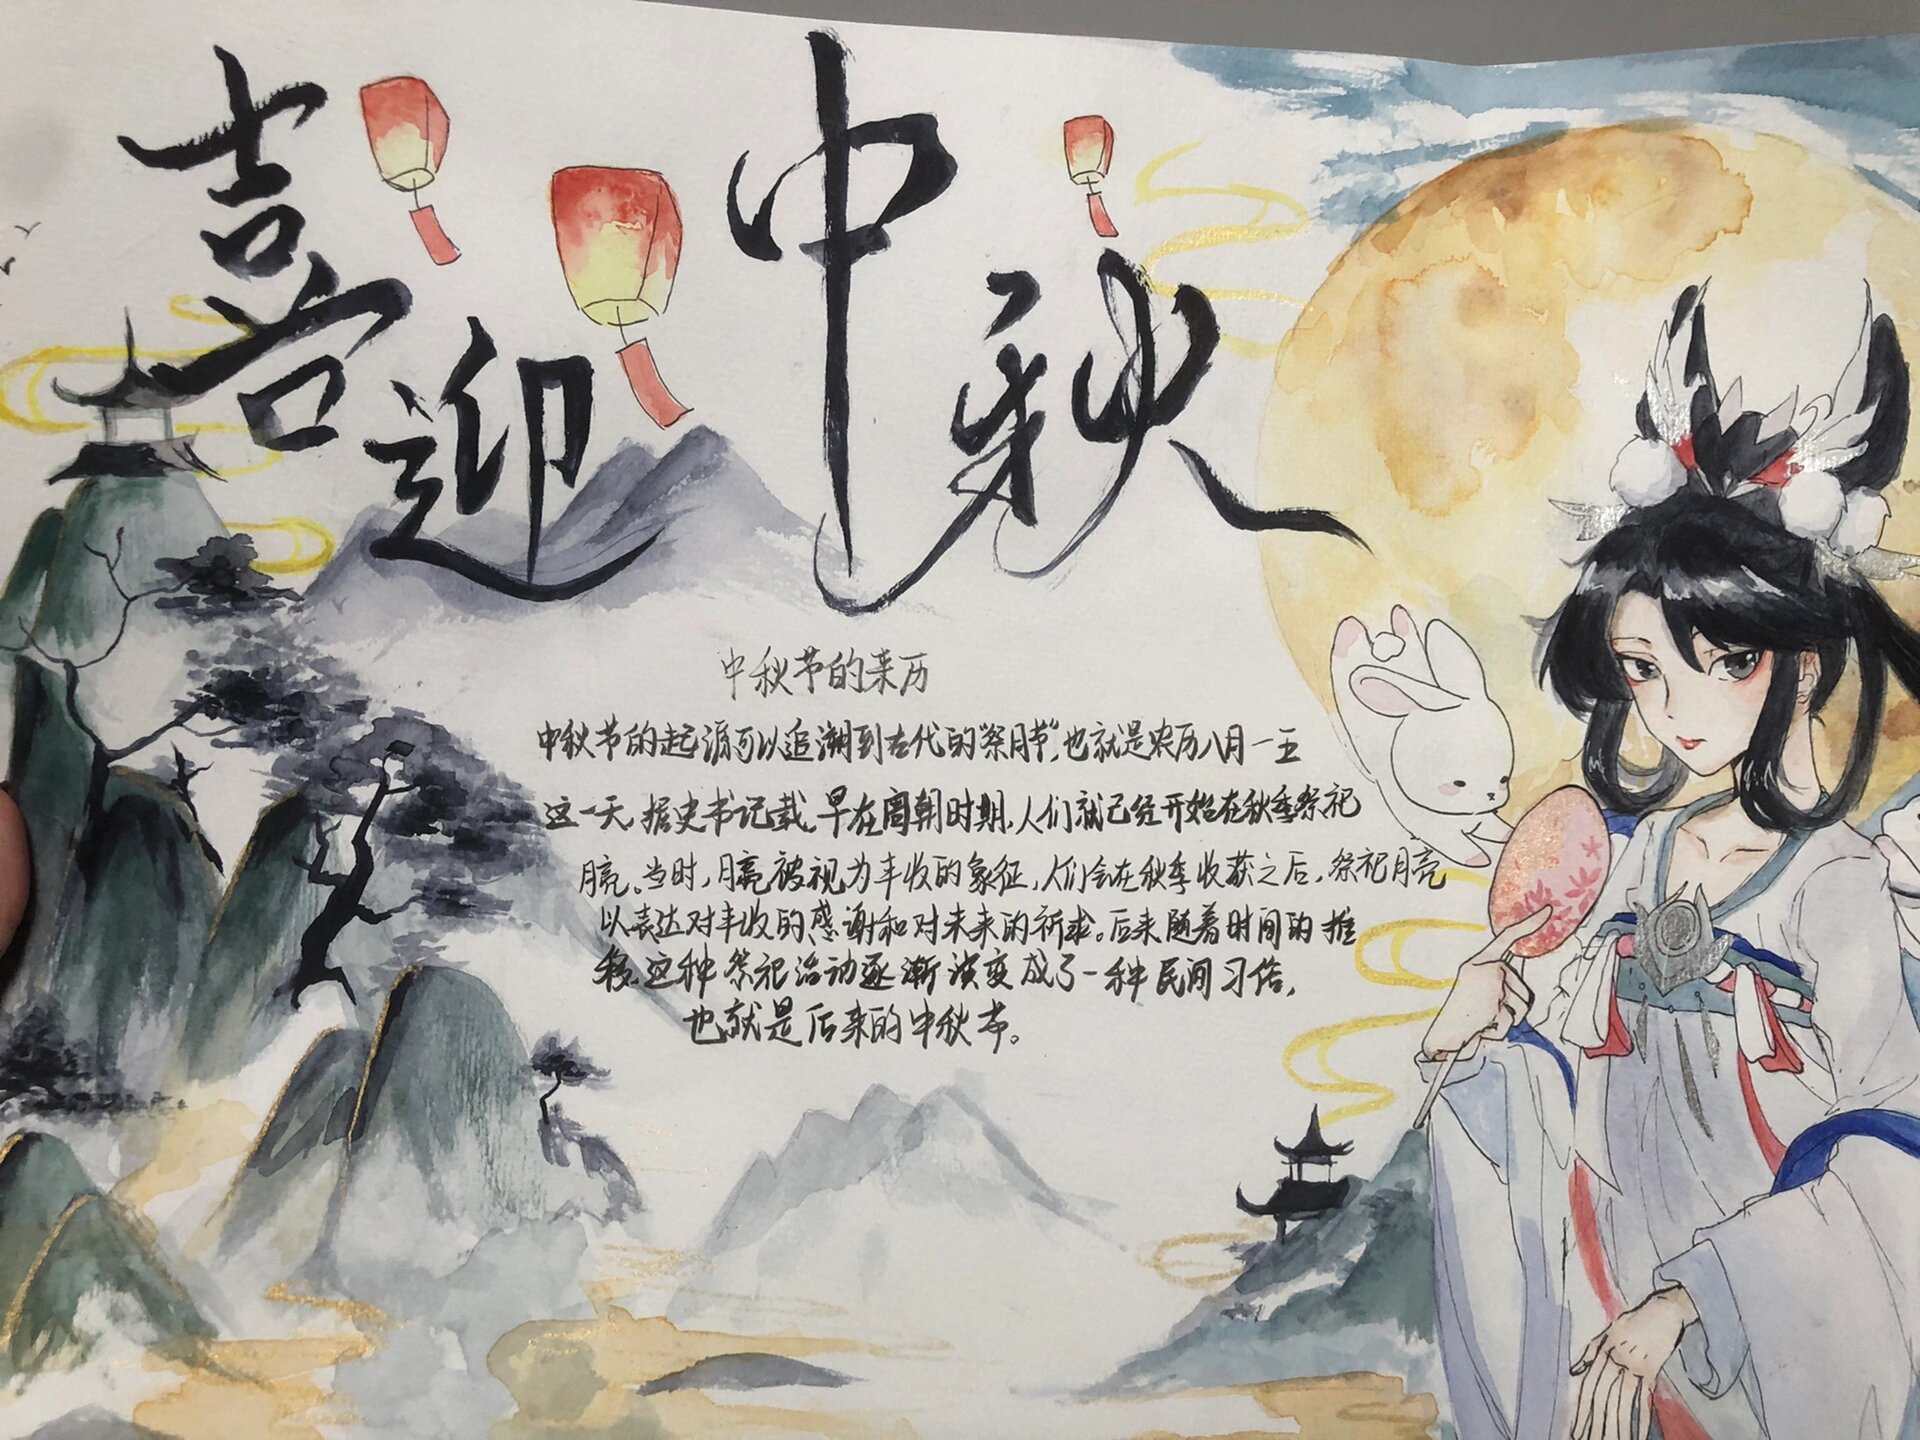 喜迎中秋
中秋节的来历
中秋节的起源可以追溯到古代的“祭月节”,也就是农历八月一五
这一天,据史书记载,早在周朝时期,人们就已经开始在秋季祭祀
月亮。当时,月亮被视为丰收的象征,人们会在秋季收获之后,祭祀月亮
以表达对丰收的感谢和对未来的祈求。后来随着时间的推
移,这种祭祀活动逐渐演变成了一种民间习俗,
也就是后来的中秋节。